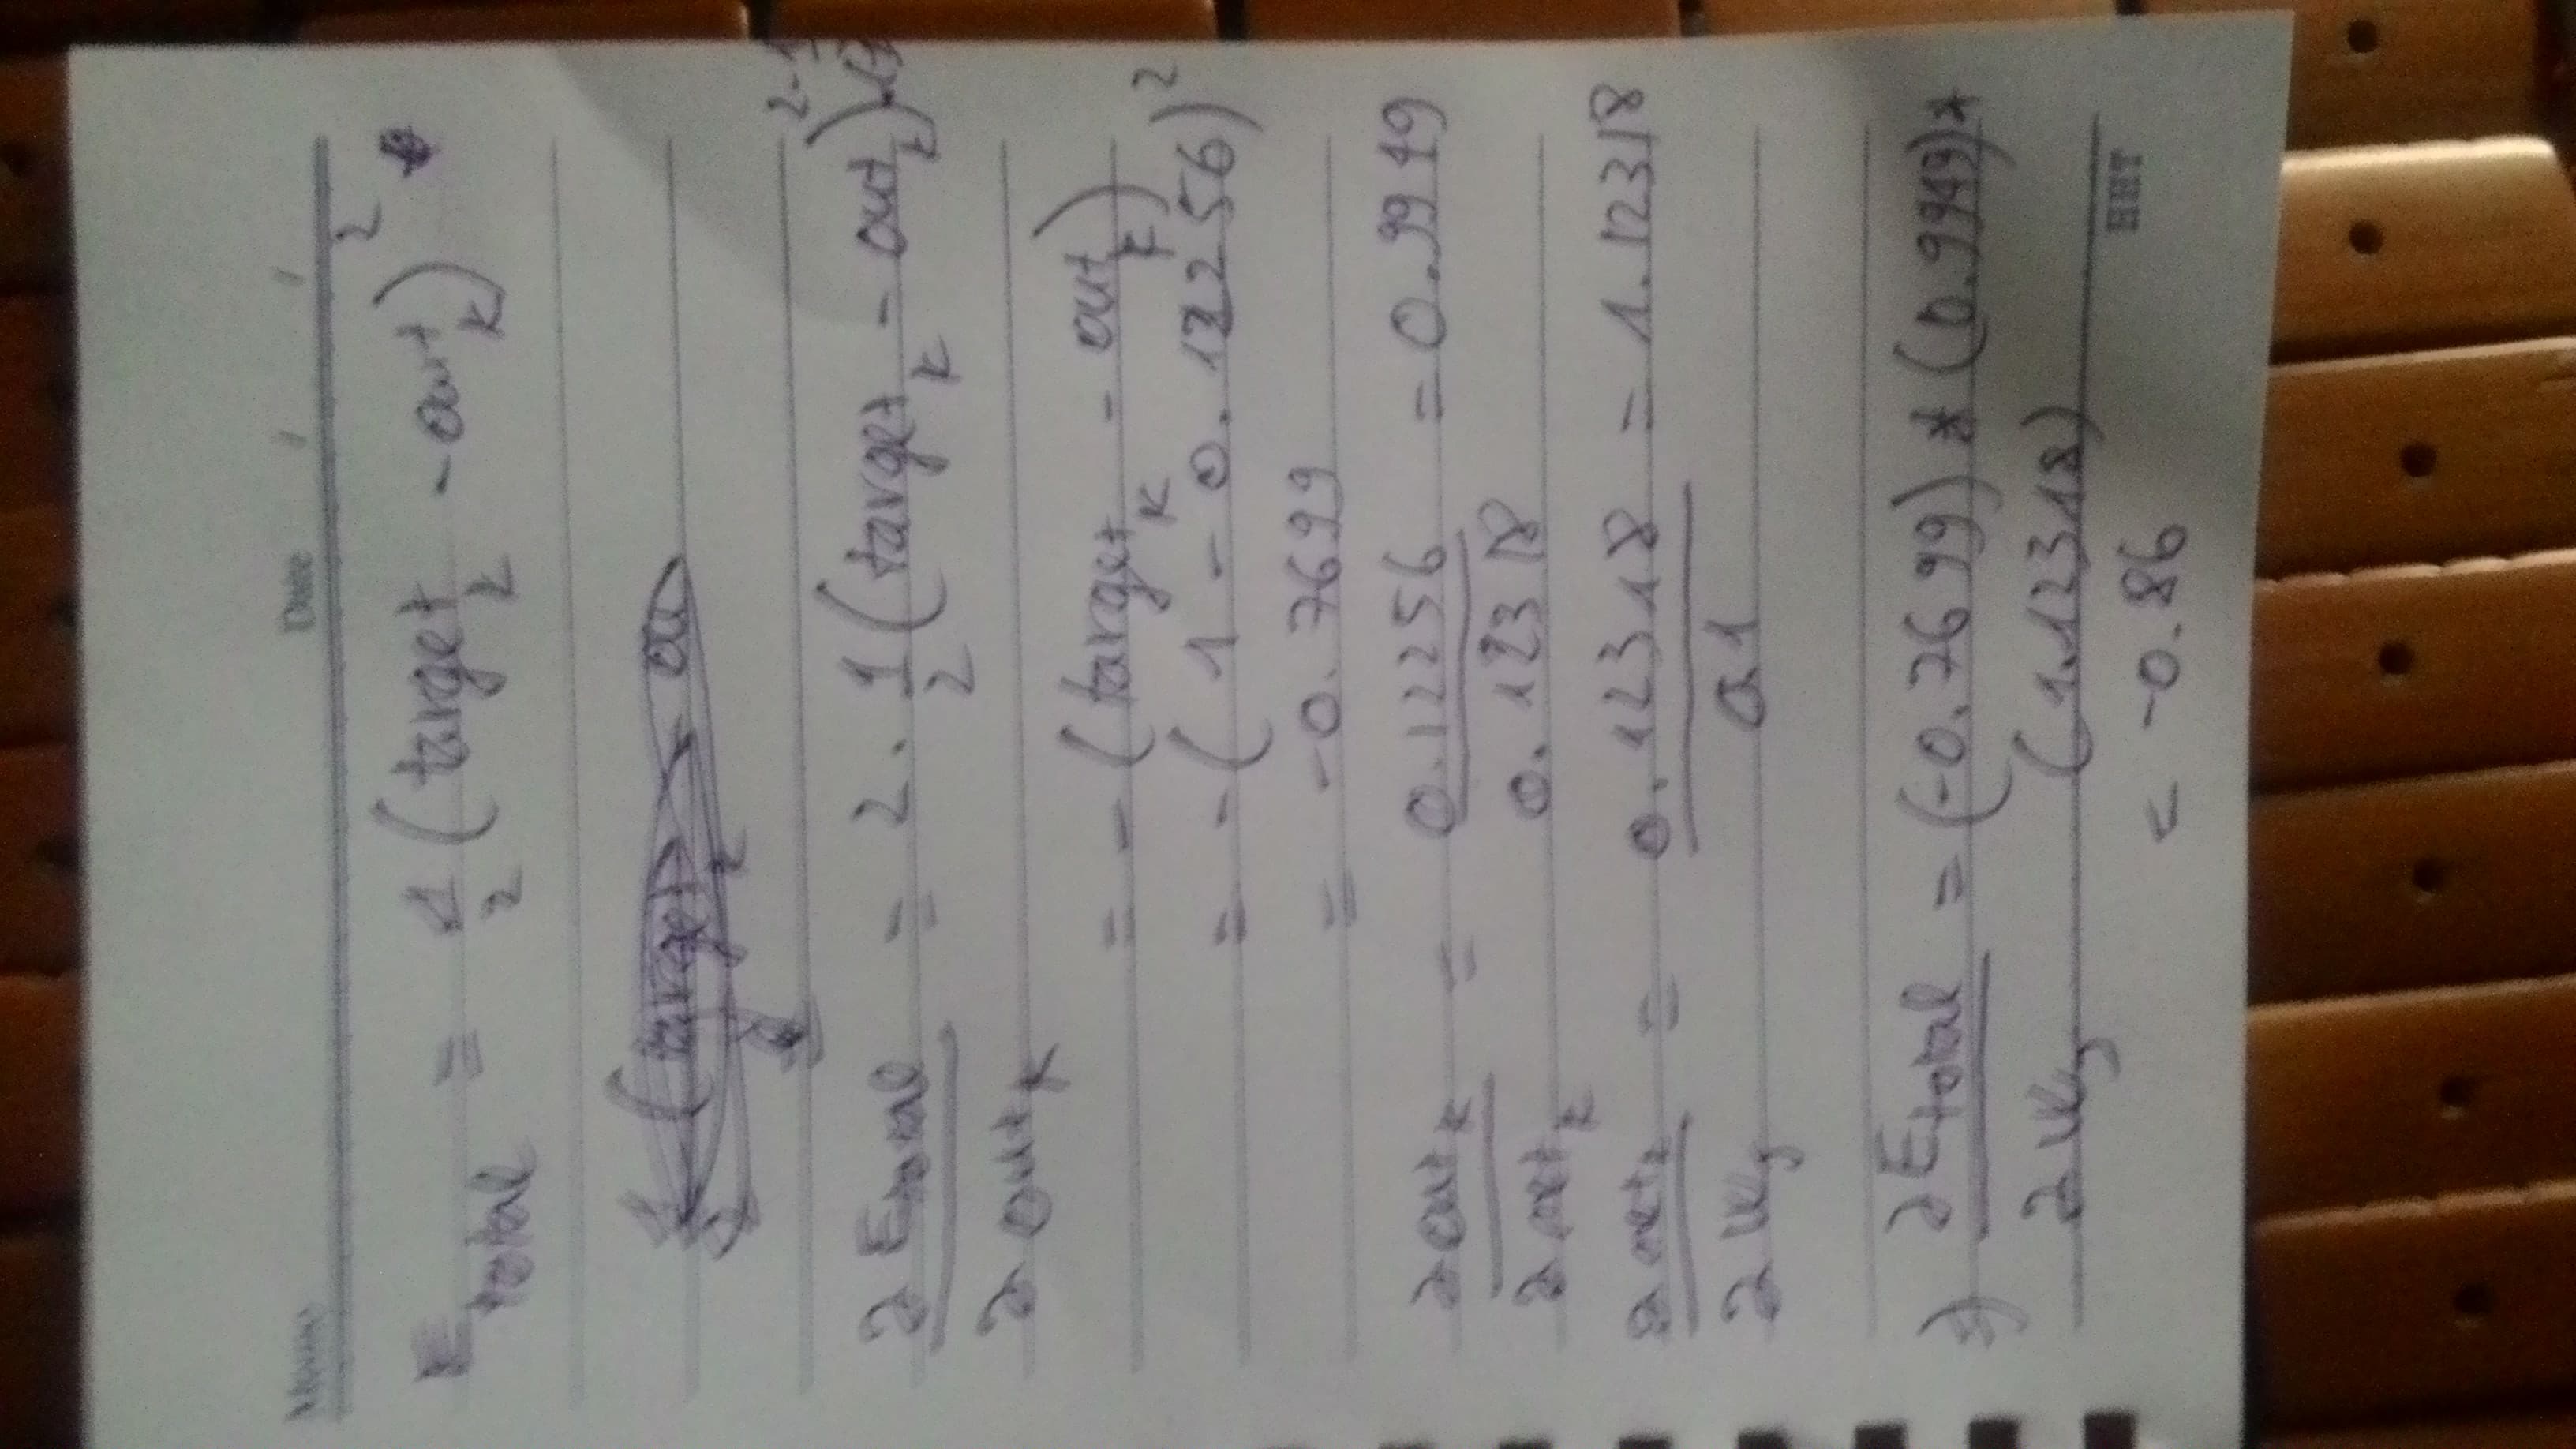 Mum
Date / /
E total = 1/2 (target k - out k)²
(target) k - ou
∂ E total / ∂ out k = 2 . 1/2 (target k - out k)²⁻¹
= - (target k - out k)
= - ( 1 - 0.12256)²
= -0.7699
∂ out k / ∂ net k = 0.12256 / 0.12318 = 0.9949
∂ net k / ∂ W kj = 0.12318 / 0.1 = 1.12318
∂ E total / ∂ W kj = (-0.7699) * (0.9949) *
(1.12318)
= -0.86